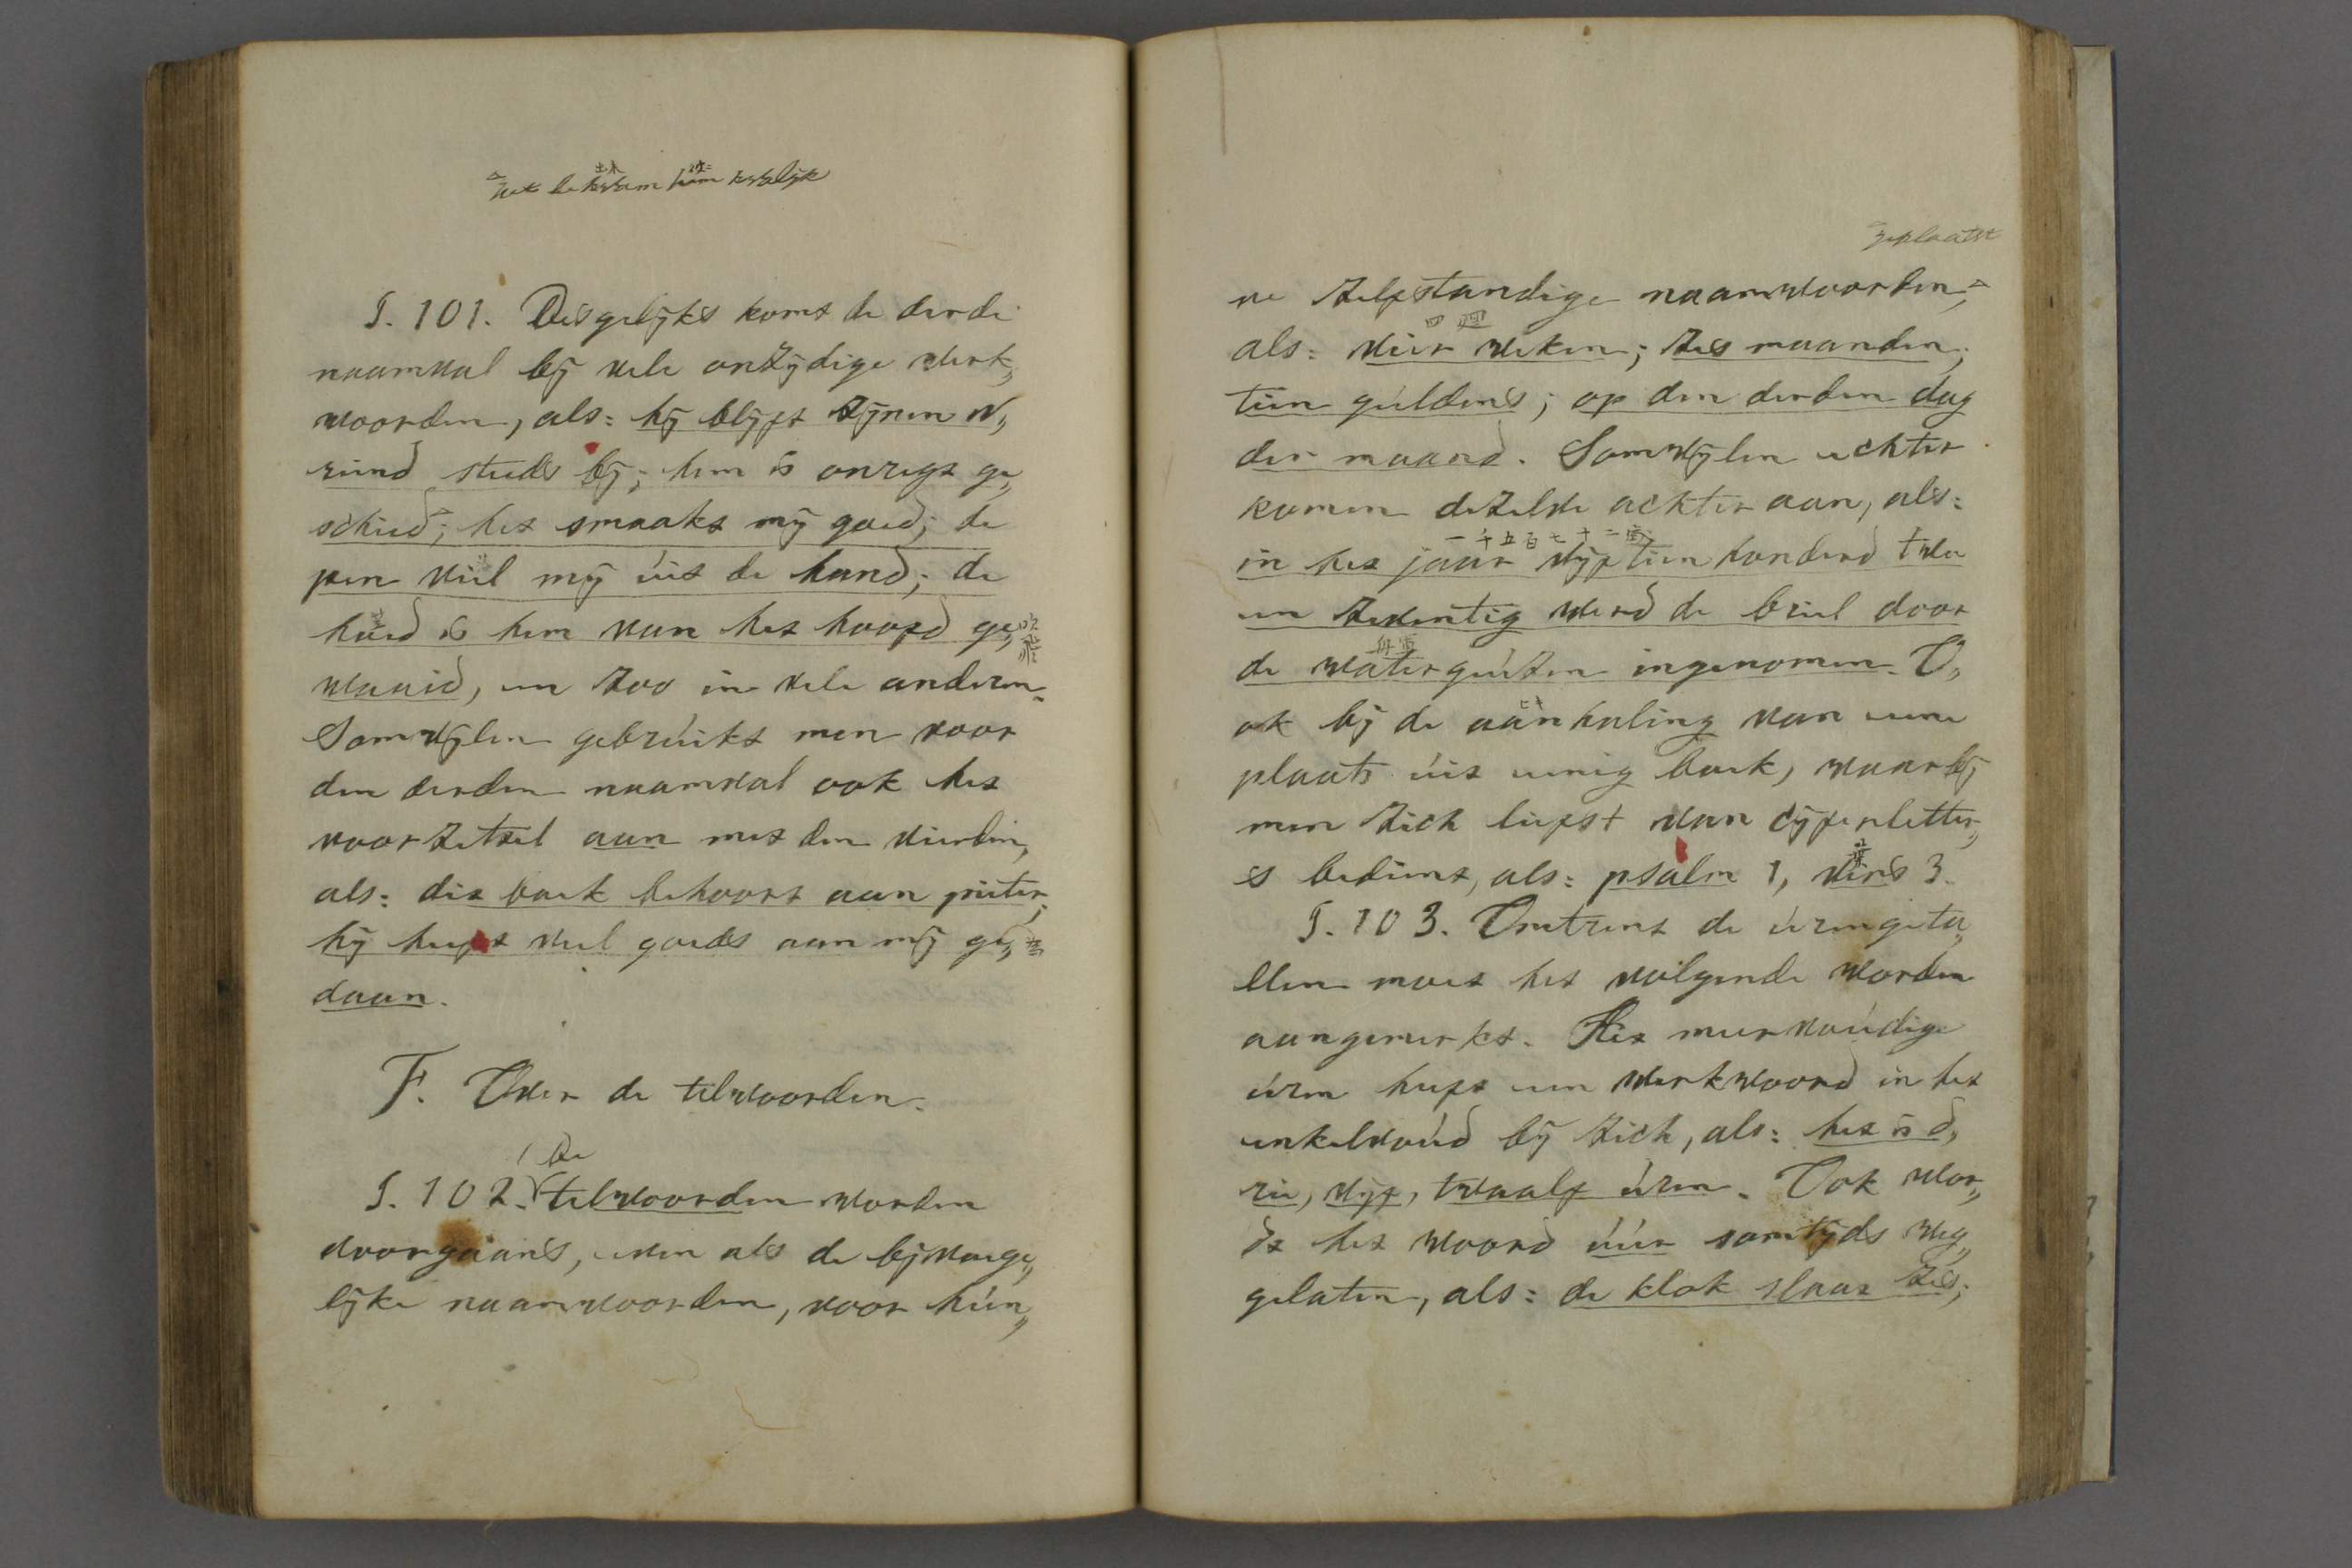 het bekwam hem kwalijk
§. 101. Desgelijks komt de derde
naamval bij vele onzijdige werk„
woorden, als: hij blijft zijnen v„
riend steeds bij; hem is onregt ge„
schied; het smaakt mij goed; de
pen viel mij úit de hand; de
hoed is hem van het hoofd ge„
waaid, en zoo in vele anderen.
Somwijlen gebrúikt men voor
den derden naamval ook het
voorzetsel aan met den vierden,
als: dit boek behoort aan pieter;
hij heeft veel goeds aan mij ge„
daan.
F. Over de telwoorden.
De
§. 102. telwoorden worden
doorgaans, even als de bijvoege„
lijke naamwoorden, voor hún„
geplaatst
ne zelfstandige naamwoorden,
四 週
als: vier weken; zes maanden;
tien gúldens; op den derden dag
der maand. Somwijlen echter
komen dezelve achter aan, als:
一千五百七十二
in het jaar vijftien honderd twee
en zeventig werd de briel door
de watergeúzen ingenomen. O„
ok bij de aanhaling van eene
plaats úit eenig boek, waarbij
men zich liefst van cijferletter„
s bedient, als: psalm 1, vers 3.
§. 103. Omtrent de úrengeta„
llen moet het volgende worden
aangemerkt. Het meervoúdige
úren heeft een werkwoord in het
enkelvoúd bij zich, als: het is d„
rie, vijf, twaalf úren. Ook wor„
dt het woord úúr somtijds weg„
gelaten, als: de klok slaat zes;